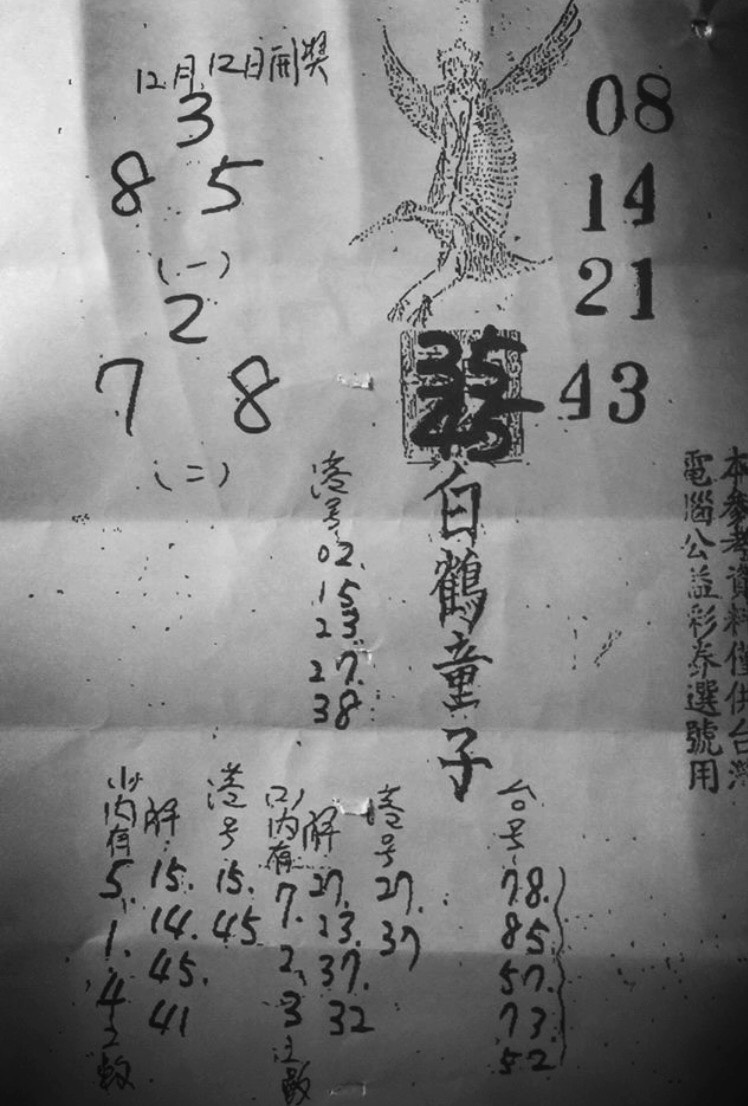 12月12日開獎
3
8 5
(一)
2
7 8
(二)
08
14
21
43
本參考資料僅供台灣
電腦公益彩券選號用
白鶴童子
港号
02.
15
23
27.
38
台号
78.
85
57.
73.
52
港号
27.
37
解
27.
23.
37.
32
(2)内有
7.
2.
3
之數
港号
15.
45
解
15.
14.
45.
41
内有
5.
1.
4
之數